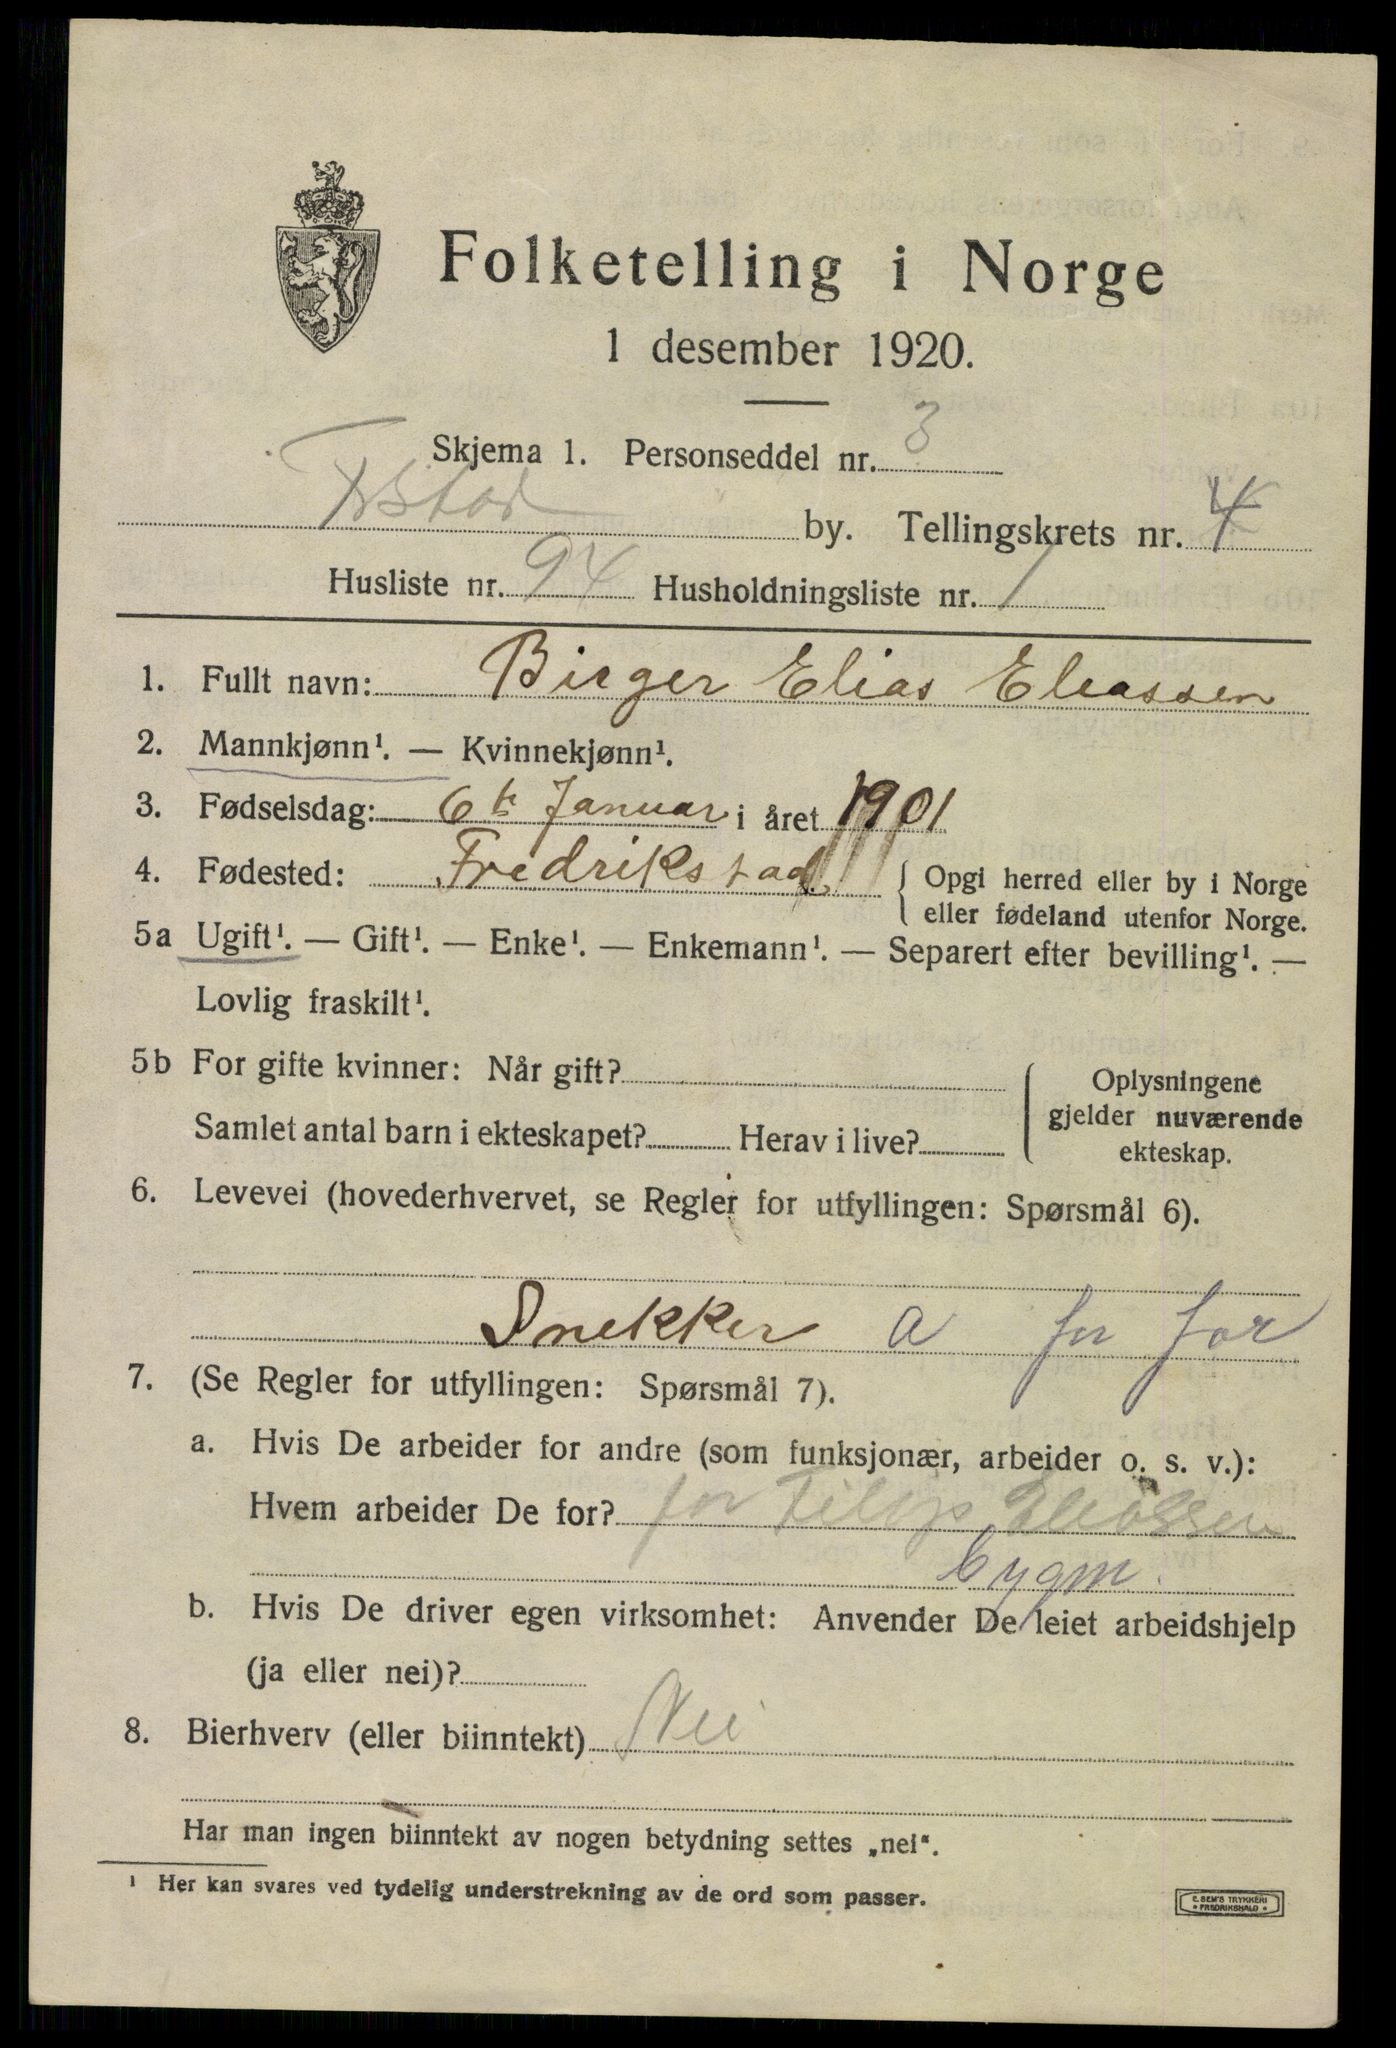 Folketelling i Norge
1 desember 1920.
Skjema 1. Personseddel nr. 3
Frstad by. Tellingskrets nr. 4
Husliste nr. 94 Husholdningsliste nr. 1
1. Fullt navn: Birger Elias Eleassen
2. Mannkjønn¹. — Kvinnekjønn¹.
3. Fødselsdag: 6te Januar i året 1901
4. Fødested: Fredrikstad. { Opgi herred eller by i Norge
eller fødeland utenfor Norge.
5a Ugift¹. — Gift¹. — Enke¹. — Enkemann¹. — Separert efter bevilling¹. —
Lovlig fraskilt¹.
5b For gifte kvinner: Når gift?
Samlet antal barn i ekteskapet? Herav i live?
Oplysningene
gjelder nuværende
ekteskap.
6. Levevei (hovederhvervet, se Regler for utfyllingen: Spørsmål 6).
Snekker a for far
7. (Se Regler for utfyllingen: Spørsmål 7).
a. Hvis De arbeider for andre (som funksjonær, arbeider o. s. v.):
Hvem arbeider De for? for Filip Eleassen
bygm.
b. Hvis De driver egen virksomhet: Anvender De leiet arbeidshjelp
(ja eller nei)?
8. Bierhverv (eller biinntekt) Nei
Har man ingen biinntekt av nogen betydning settes „nei“.
¹ Her kan svares ved tydelig understrekning av de ord som passer.
E. SEM'S TRYKKERI
* FREDRIKSHALD *